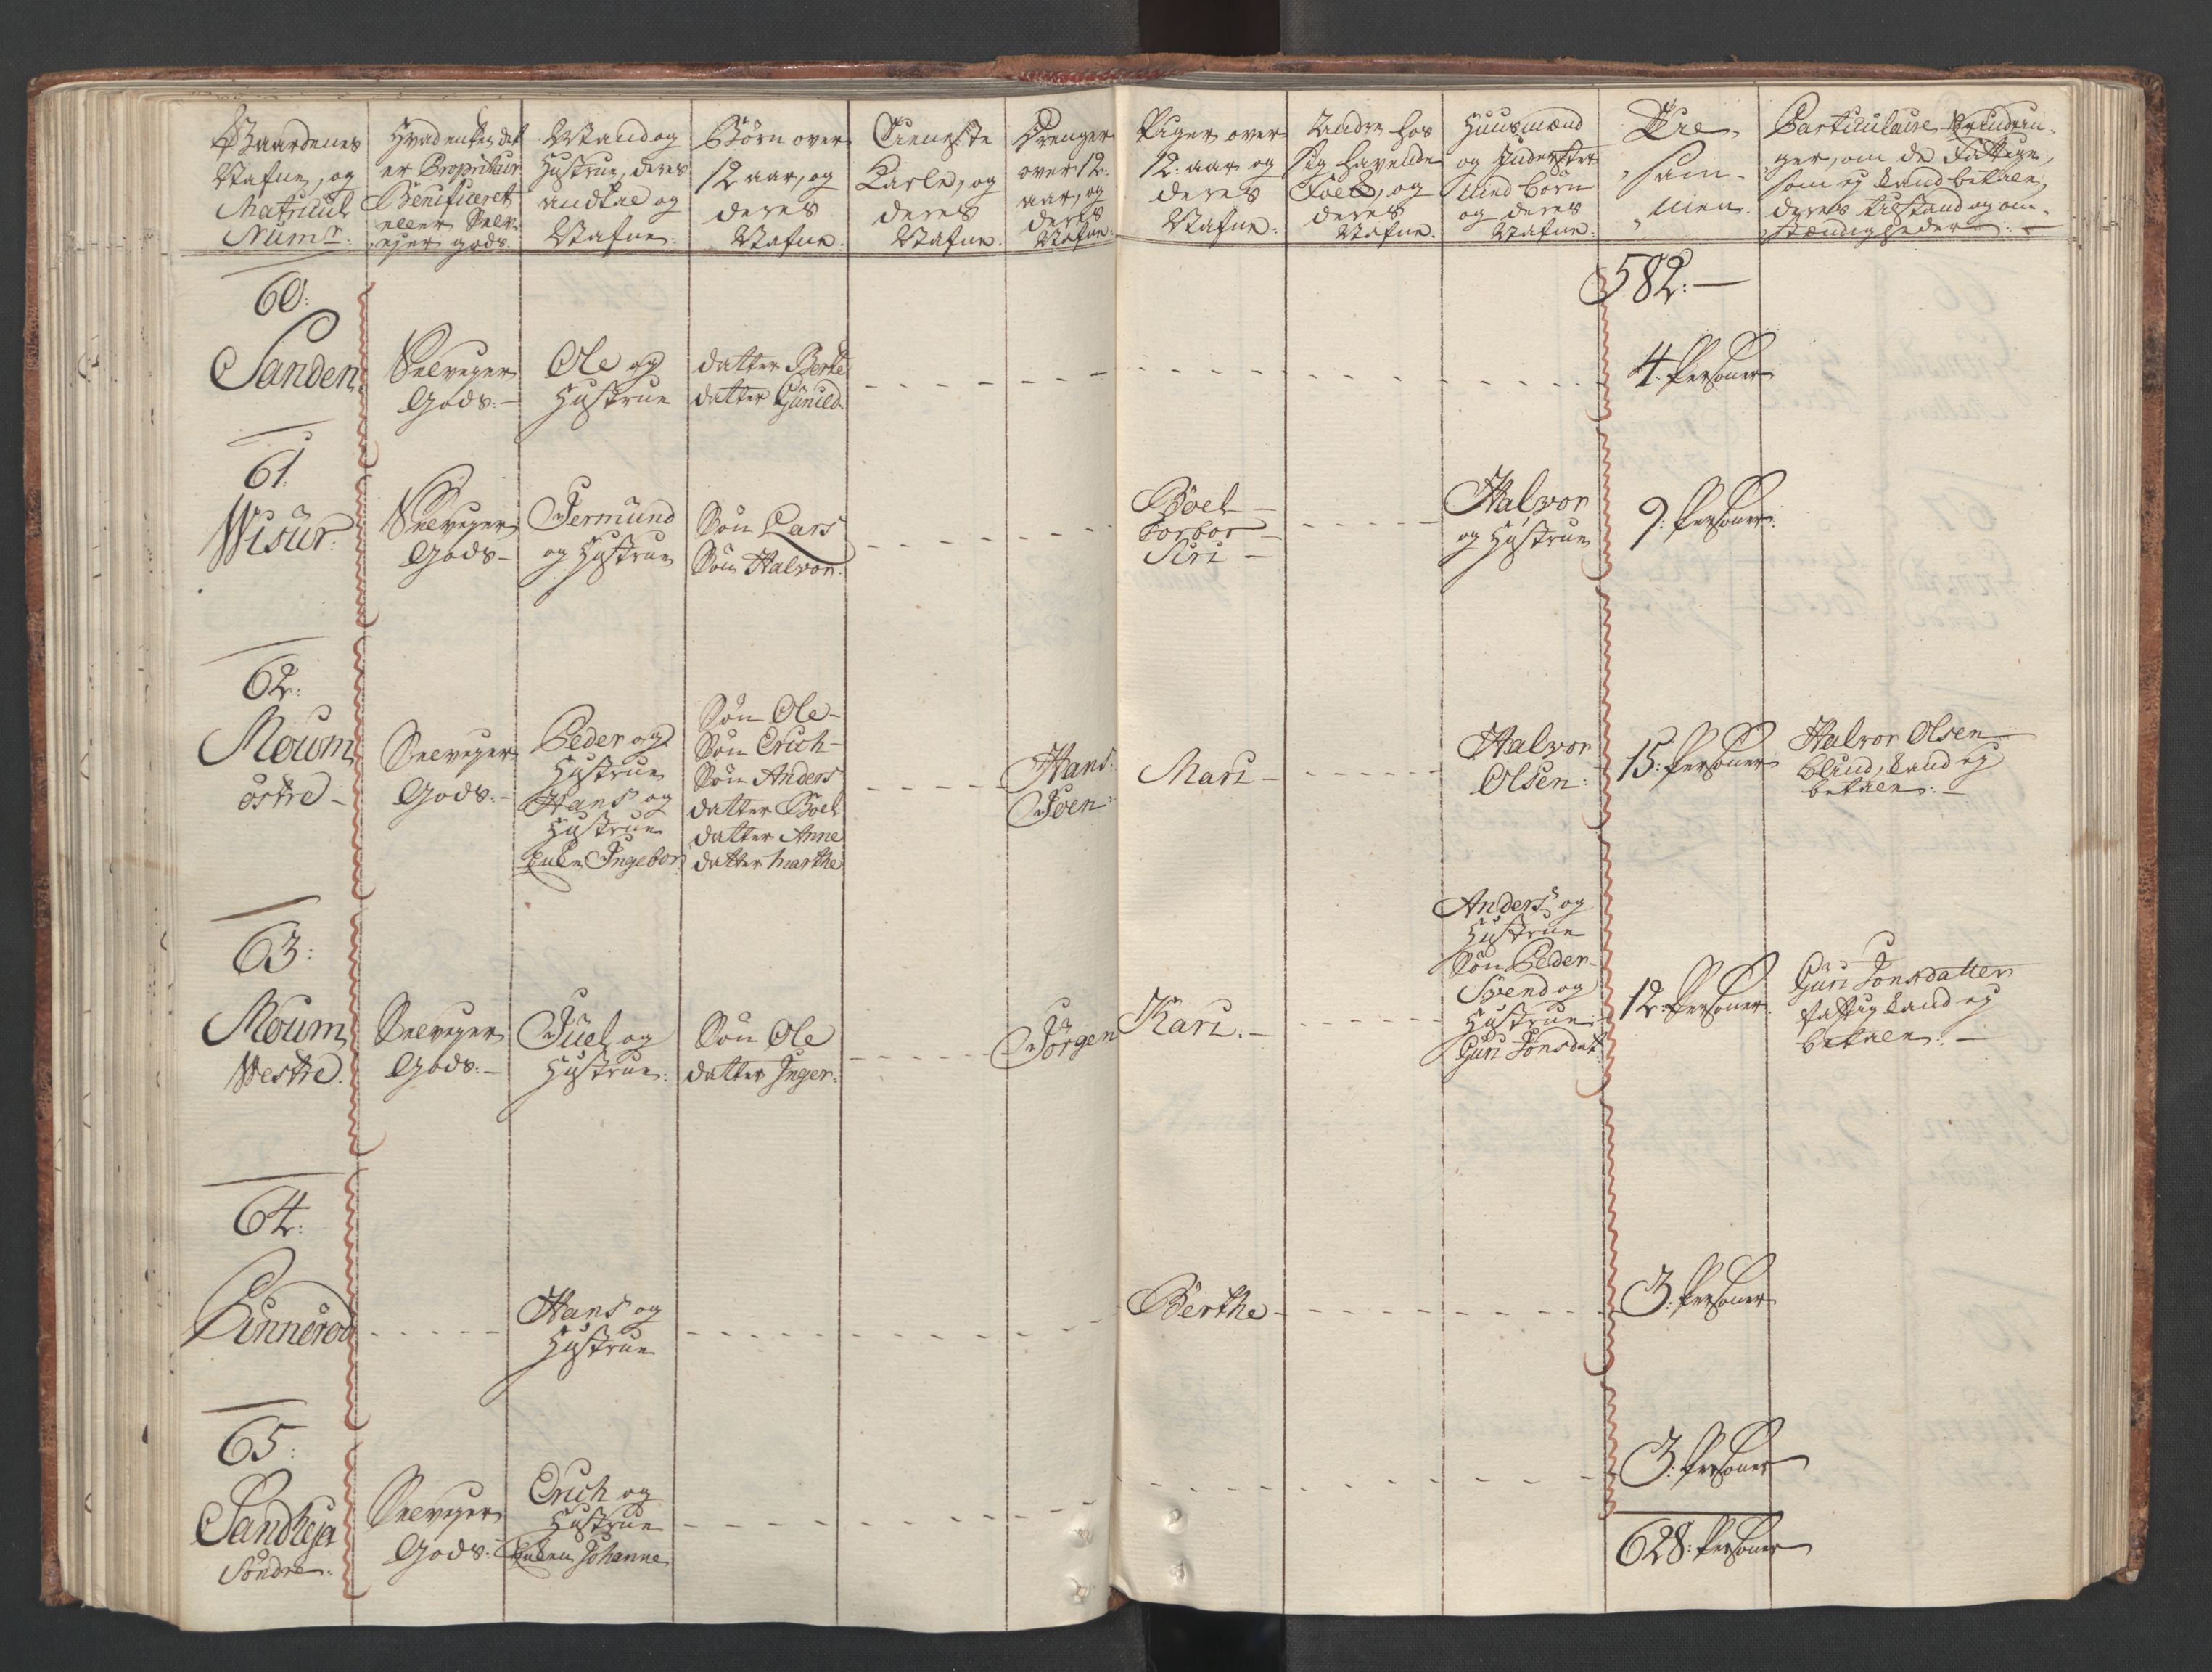 Gaardenes
Nafne, og
Matricul
Numr:
Hvad enten det
er Proprietair
Beneficeret
eller Selv-
ejer gods.
Mand og
Hustrue, deres
andtal og
Nafne:
Börn over
12 aar, og
deres
Nafne:
Tieneste
Karle, og
deres
Nafne:
Drenger
over 12
aar, og
deres
Nafne:
Piger over
12: aar og
deres
Nafne:
Andre hos
sig havende
Folk, og
deres
Nafne:
Huusmænd
og Inderster
med börn
og deres
Nafne:
Til-
sam-
men
Particulaire
ger, om de Fattige,
som ej kand betale,
deres tilstand og om-
stændigheder:
582:—
60:
Sanden
Selvejer
Gods:—
Ole og
Hustrue
datter Berte
datter Gunild
4: Personer
61:
Wisür:
Selvejer
Gods—
Jermünd
og Hustrue
Sön Lars
Sön Halvor:
Boel—
Torbor—
Siri—
Halvor
og Hustrue
9: Personer:
62:
Moum
östre—
Selvejer
Gods:—
Peder og
Hustrue
Hans og
Hustrue
Enke Ingebor
Sön Ole—
Sön Erich—
Sön Anders
datter Boel
datter Anne
datter Marthe
Hans:
Joen:
Mari—
Halvor
Olsen:
15: Personer
Halvor Olsen
blind, kand ej
betale:—
63:
Moum
Westre:
Selvejer
Gods:—
Juel og
Hustrue:
Sön Ole
datter Inger:
Jörgen
Kari:—
Anders og
Hustrue
Sön Peder—
Svend og
Hustrue:
Guri Jonsdat:
12: Personer:
Guri Jonsdatter
fattig kand ej
betale:—
64:
Linneröd
Hans og
Hustrue
Berthe—
3: Personer
65:
Sandhejer
Söndre:
Selvejer
Gods:
Erich og
Hustrue
Enken Johanne
3: Personer
628: Personer